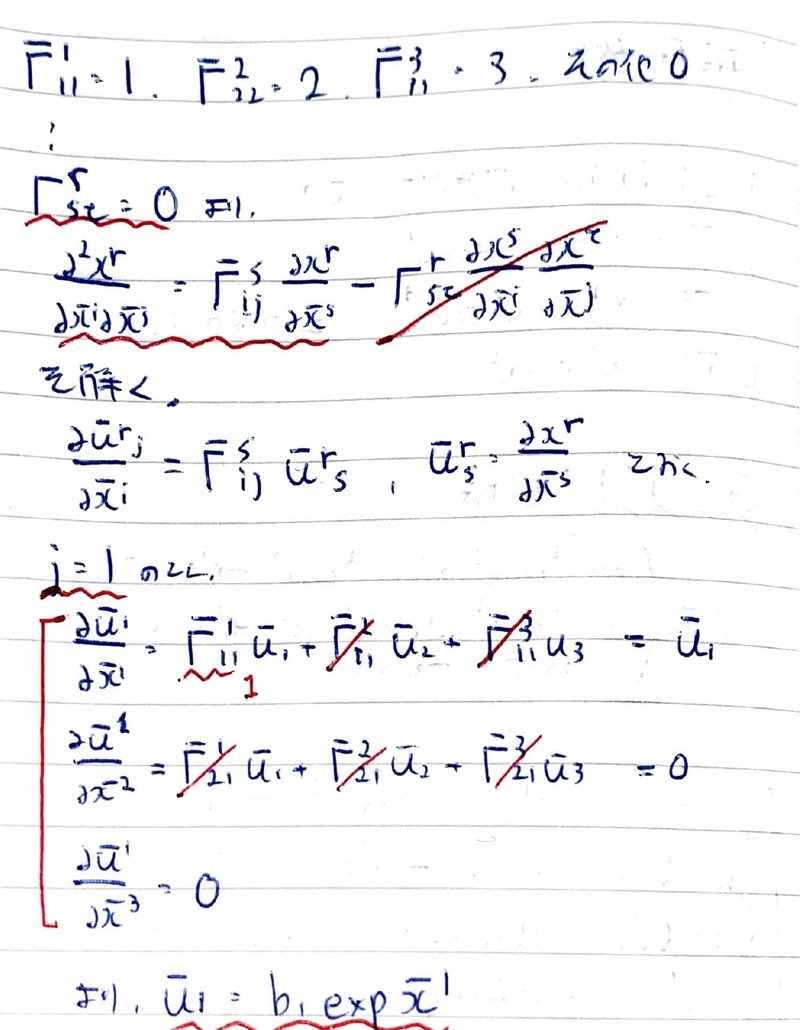 Γ̄¹₁₁ = 1. Γ̄²₂₂ = 2. Γ̄³₁₁ = 3. その他 0
⋮
Γʳₛₜ = 0 より.
∂²xʳ/∂x̄ⁱ∂x̄ʲ = Γ̄ˢᵢⱼ ∂xʳ/∂x̄ˢ − Γʳₛₜ ∂xˢ/∂x̄ⁱ ∂xᵗ/∂x̄ʲ
を解く.
∂ūʳⱼ/∂x̄ᵢ = Γ̄ˢᵢⱼ ūʳₛ , ūʳₛ = ∂xʳ/∂x̄ˢ とおく.
j = 1 のとし.
∂ū¹/∂x̄¹ = Γ̄¹₁₁ ū₁ + Γ̄²₁₁ ū₂ + Γ̄³₁₁ u₃ = ū₁
1
∂ū¹/∂x̄² = Γ̄¹₂₁ ū₁ + Γ̄²₂₁ ū₂ + Γ̄³₂₁ ū₃ = 0
∂ū¹/∂x̄³ = 0
より, ū₁ = b₁ exp x̄¹